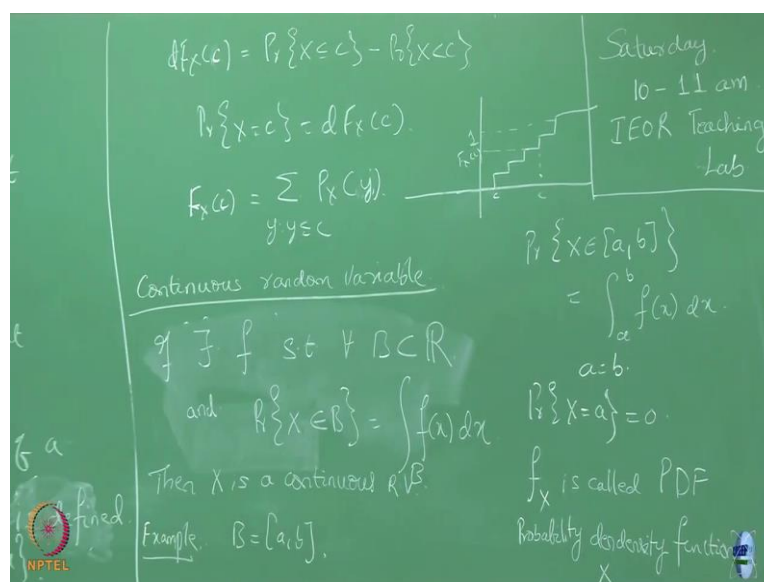 t
t
f a
defined
dF_X(c) = Pr{X≤c} - Pr{X<c}
Pr{X=c} = dF_X(c).
F_X(c) = ∑ P_X(y)
y:y≤c
Continuous random variable
if ∃ f s.t ∀ B⊂ℝ
and Pr{X∈B} = ∫_B f(x) dx
Then X is a continuous RV.
Example. B=[a,b].
1
F_X(c)
c
c
Saturday.
10 - 11 am
IEOR Teaching
Lab
Pr{X∈[a,b]}
= ∫_a^b f(x) dx.
a=b.
Pr{X=a}=0.
f_X is called PDF
Probability dendensity function
X
NPTEL